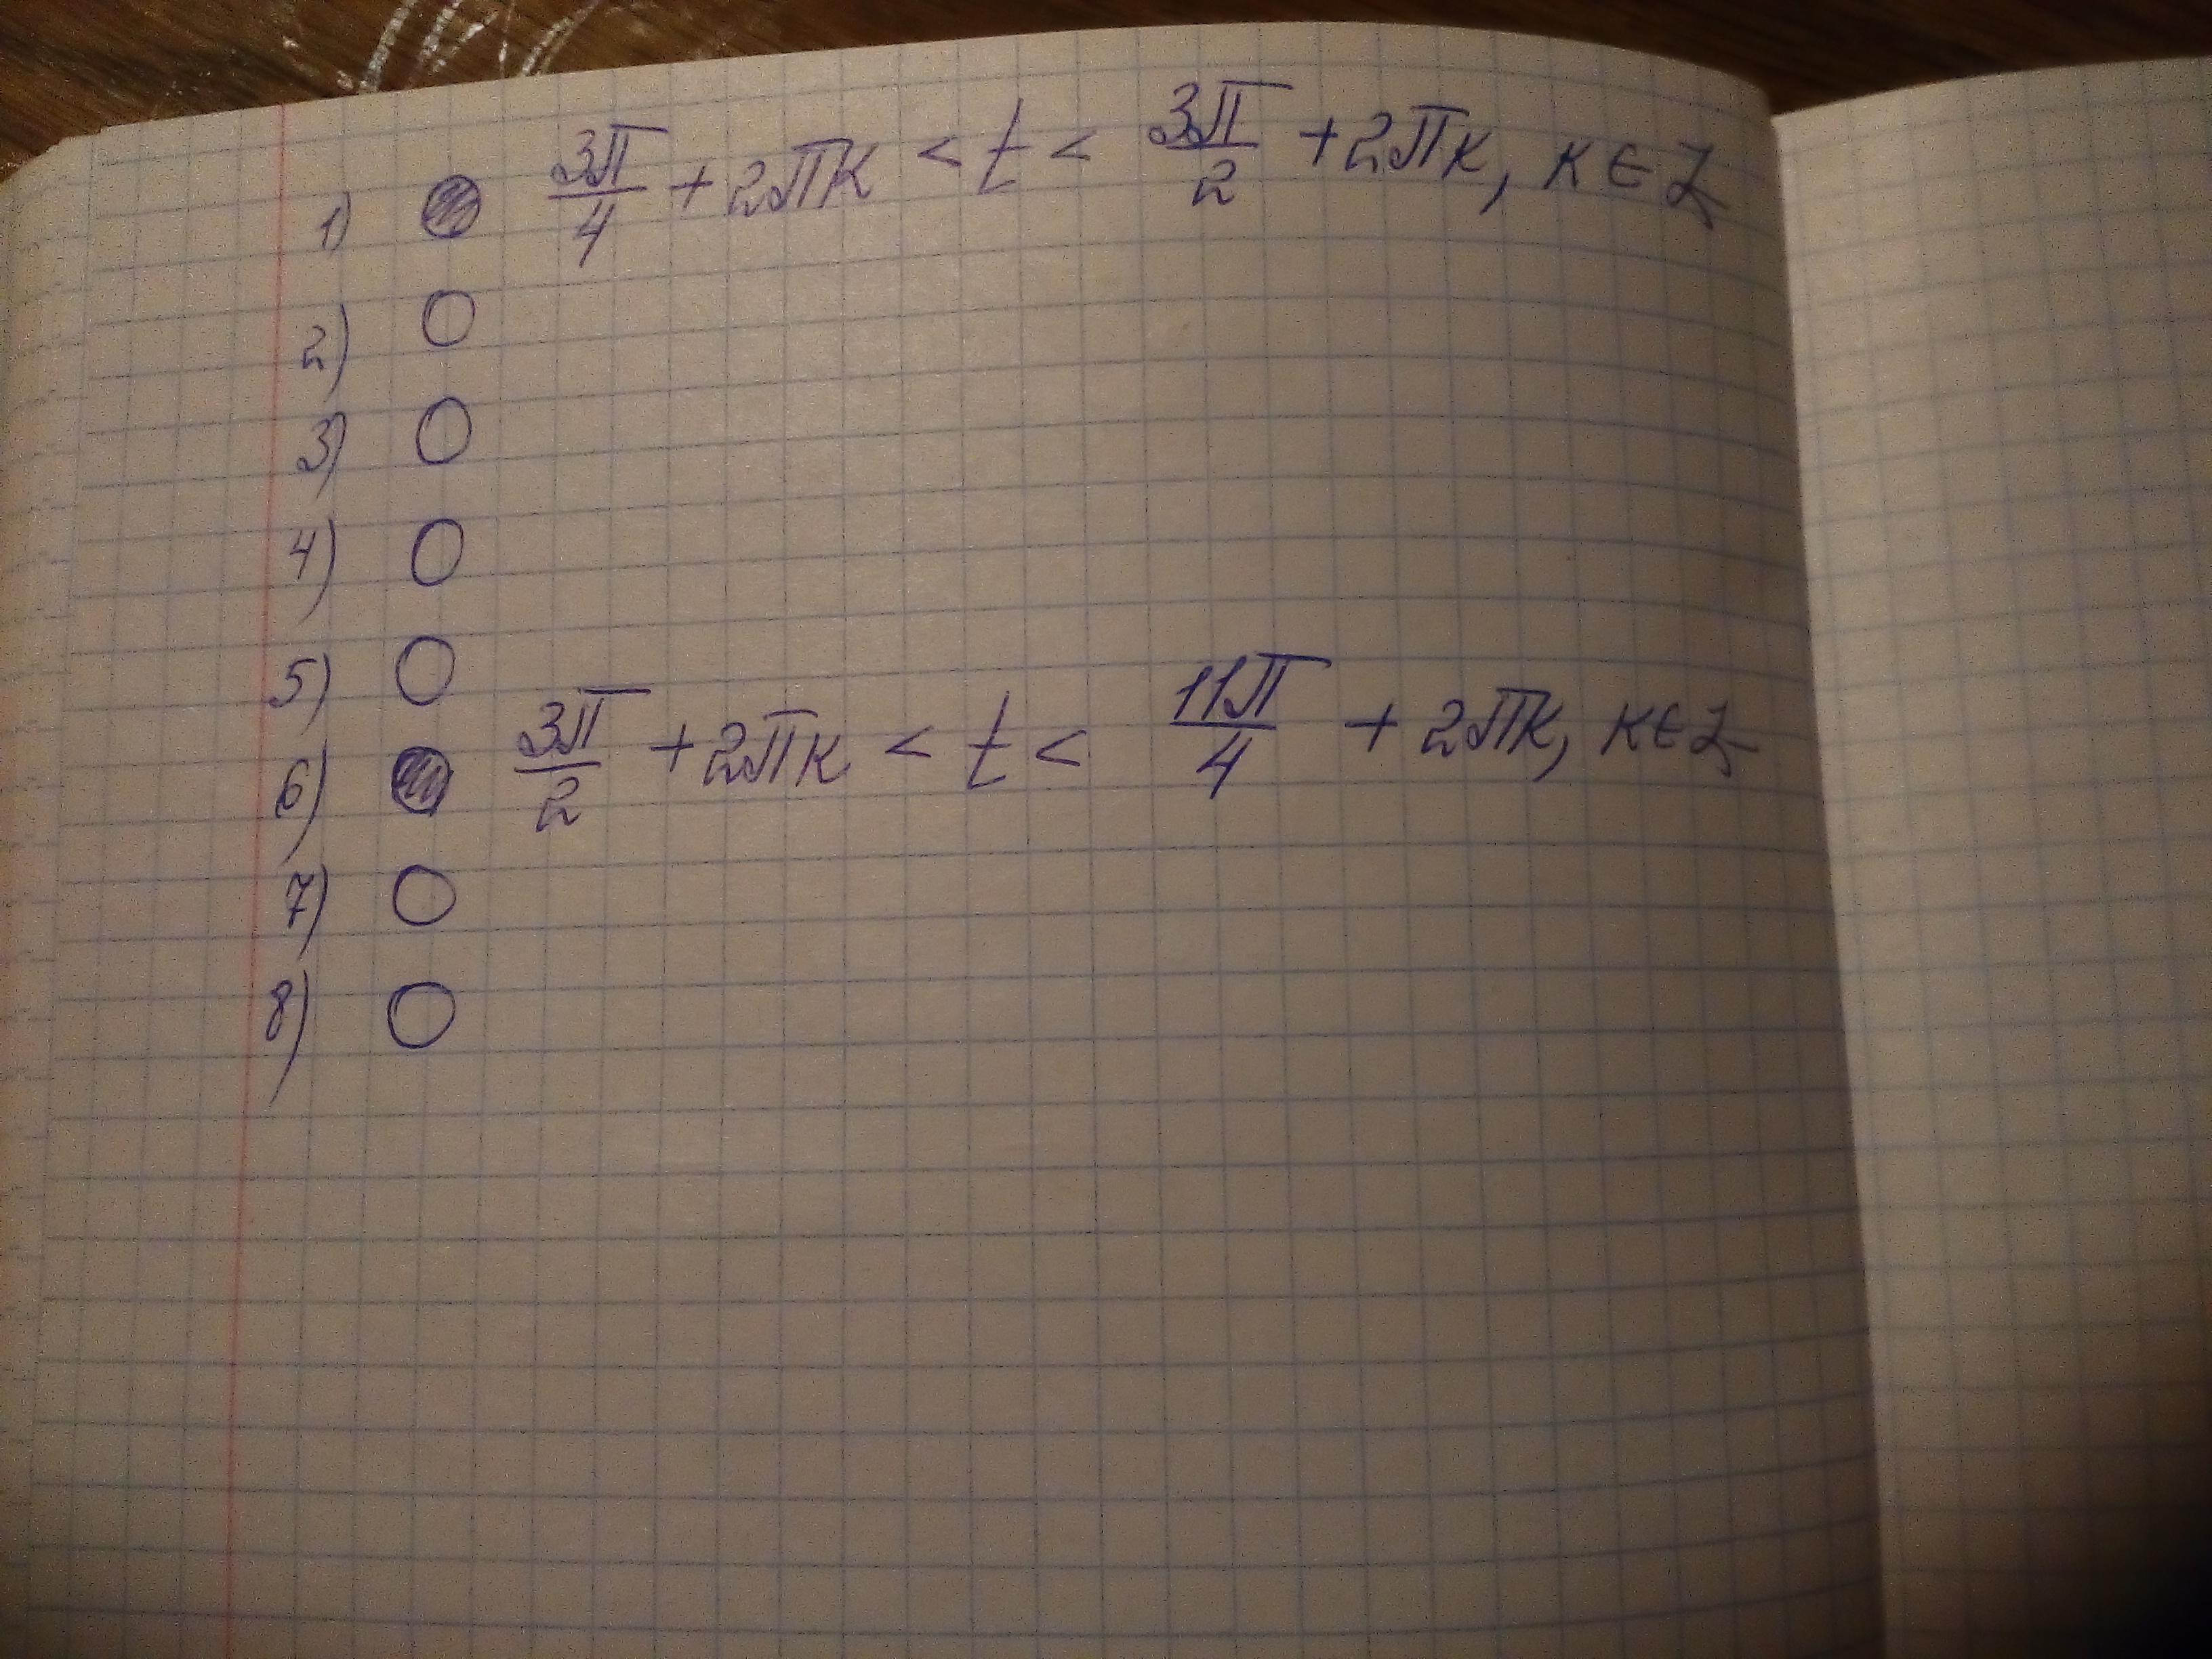 1) ● 3π/4 + 2πк < t < 3π/2 + 2πк, к ∈ Z
2) ○
3) ○
4) ○
5) ○
6) ● 3π/2 + 2πк < t < 11π/4 + 2πк, к ∈ Z
7) ○
8) ○